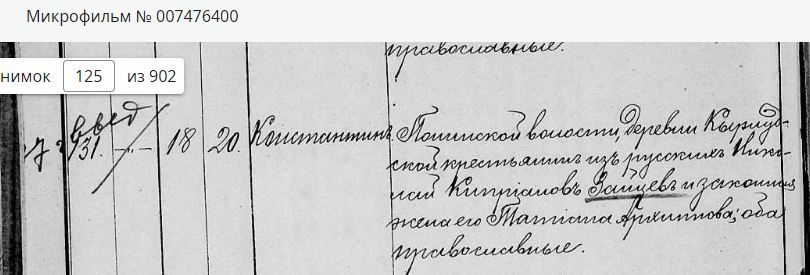 Микрофильм № 007476400
православные.
нимок 125 из 902
введ
31. 18 20. Константинъ Пошнской волости, деревни
ской крестьянинъ изъ русскихъ Нико-
лай Кипріановъ Зайцевъ и законная
жена его Татіана Архиппова; оба
православные.